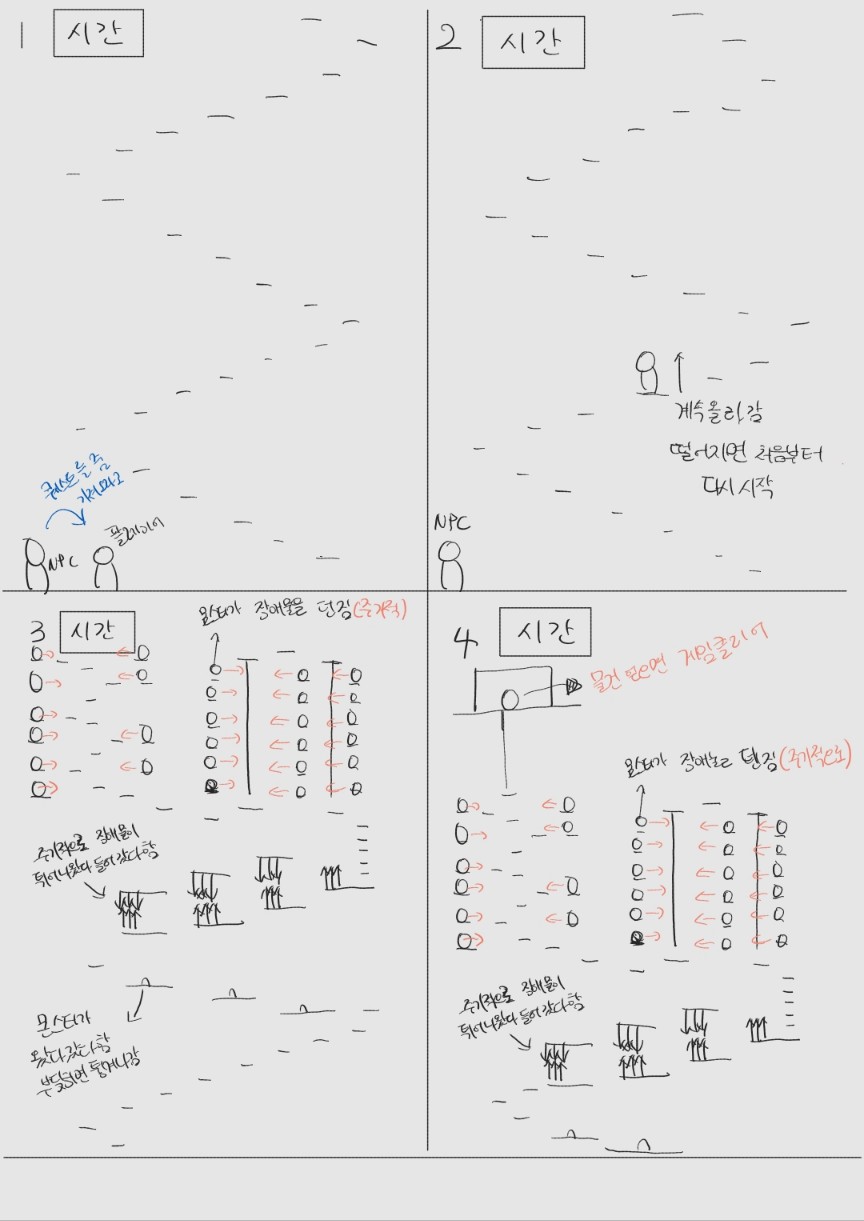 1 시간
퀘스트를 줌
가져와라고
NPC
플레이어
2 시간
계속 올라감
떨어지면 처음부터
다시 시작
NPC
3 시간
몬스터가 장애물을 던짐(주기적)
주기적으로 장애물이
튀어나왔다 들어갔다함
몬스터가
왔다갔다함
부딪히면 튕겨나감
4 시간
물건 얻으면 게임클리어
몬스터가 장애물 던짐(주기적으로)
주기적으로 장애물이
튀어나왔다 들어갔다함